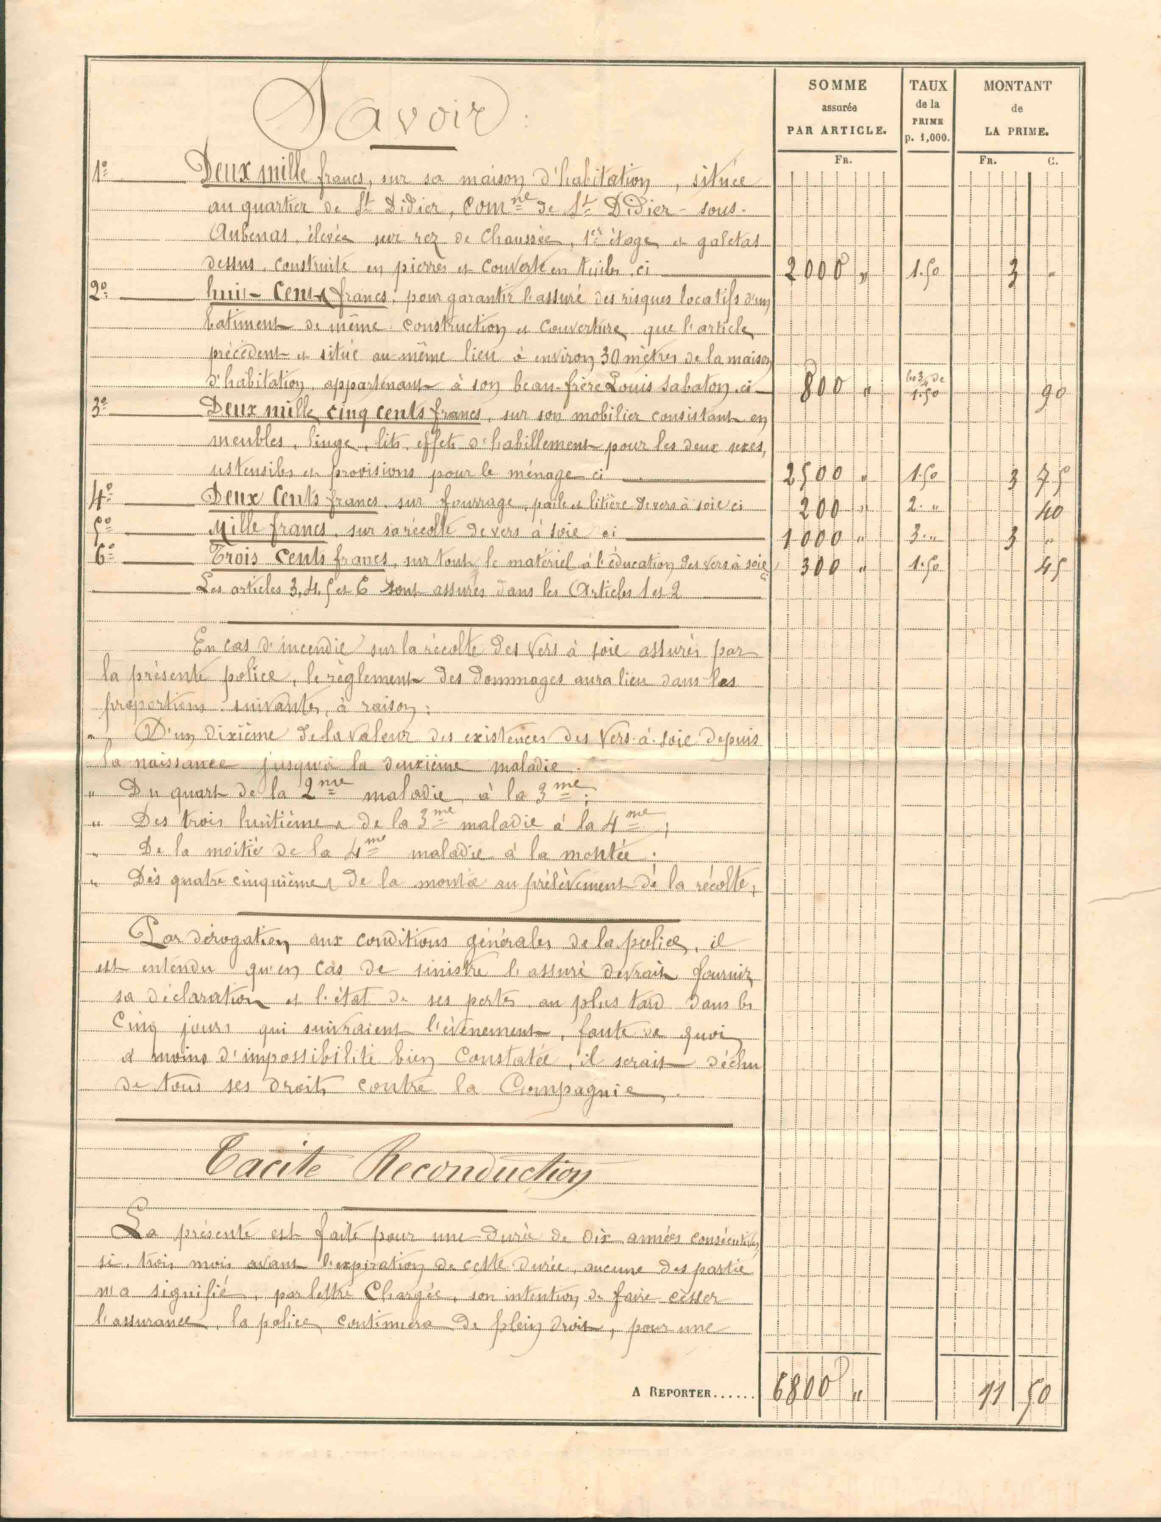 Savoir :
SOMME
assurée
PAR ARTICLE.
TAUX
de la
PRIME
p. 1,000.
MONTANT
de
LA PRIME.
Fr.
Fr. C.
1º Deux mille francs, sur sa maison d'habitation, située
au quartier de St Didier, Comne de St Didier-sous-
Aubenas, élevée sur rez de chaussée, 1er étage et galetas
dessus, construite en pierres et couverte en tuiles, ci 2000 " 1.50 3 "
2º huit-Cents francs, pour garantir l'assuré des risques locatifs d'un
batiment de même construction et couverture que l'article
précédent et situé au même lieu à environ 30 mètres de la maison
d'habitation, appartenant à son beau-frère Louis Sabaton, ci 800 " les 3/4 de 1.50 90
3º Deux mille cinq cents francs, sur son mobilier consistant en
meubles, linge, lits, effets d'habillement pour les deux sexes,
ustensiles et provisions pour le ménage ci 2500 " 1.50 3 75
4º Deux Cents francs, sur fourrage, paille et litière de vers à soie ci 200 " 2." 40
5º Mille francs, sur sa récolte de vers à soie ci 1000 " 3." 3 "
6º Trois Cents francs, sur tout le matériel à l'éducation des vers à soie ci 300 " 1.50 45
Les articles 3, 4, 5 et 6 sont assurés dans les Articles 1 et 2
En cas d'incendie sur la récolte des vers à soie assurés par
la présente police, le règlement des dommages aura lieu dans les
proportions suivantes, à raison :
" D'un dixième de la valeur des existences des Vers-à-soie depuis
la naissance jusqu'à la deuxième maladie.
" Du quart de la 2me maladie à la 3me ;
" Des trois huitièmes de la 3me maladie à la 4me ;
" De la moitié de la 4me maladie à la montée.
" Des quatre cinquièmes de la montée au prélèvement de la récolte ;
Par dérogation aux conditions générales de la police, il
est entendu qu'en cas de sinistre l'assuré devrait fournir
sa déclaration et l'état de ses pertes au plus tard dans les
Cinq jours qui suivraient l'évènement, faute de quoi
à moins d'impossibilité bien Constatée, il serait déchu
de tous ses droits contre la Compagnie.
Tacite Reconduction
La présente est faite pour une durée de dix années consécutives,
si, trois mois avant l'expiration de cette durée, aucune des partie
n'a signifié, par lettre Chargée, son intention de faire cesser
l'assurance, la police continuera de plein droit, pour une
A REPORTER...... 6800 " 11 50